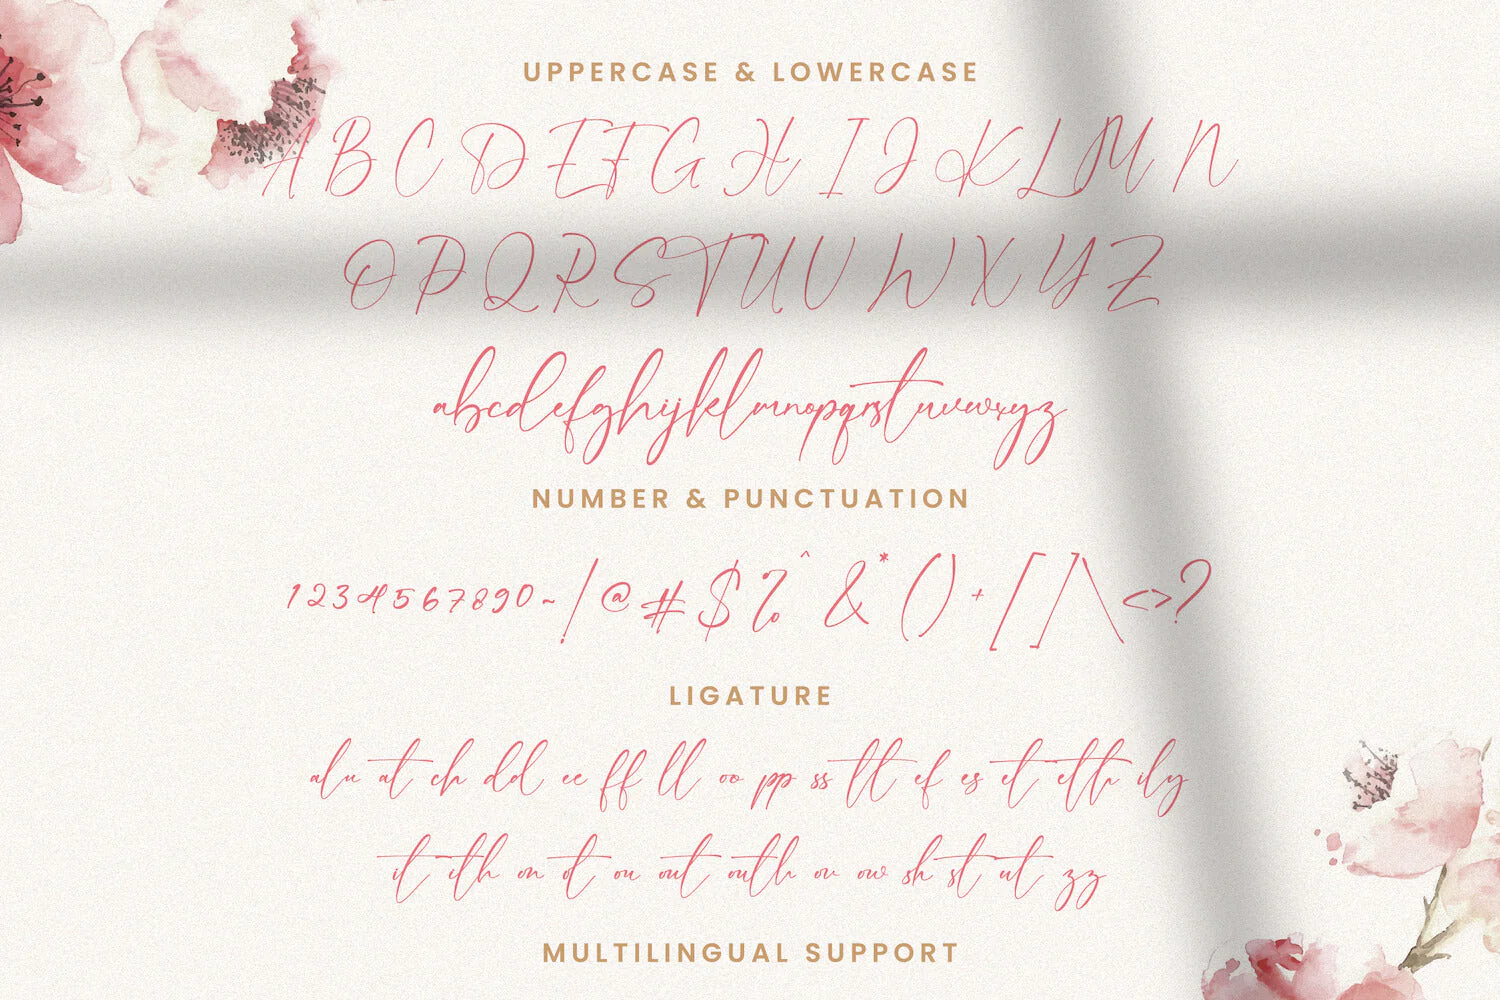 UPPERCASE & LOWERCASE
A B C D E F G H I J K L M N
O P Q R S T U V W X Y Z
abcdefghijklmnopqrstuvwxyz
NUMBER & PUNCTUATION
1234567890~!@#$%^&*()+[]\<>?
LIGATURE
al u at ch dd ee ff ll oo pp ss tt ef es et eth ily
it ith on ot ou out outh ov ow sh st ut zz
MULTILINGUAL SUPPORT